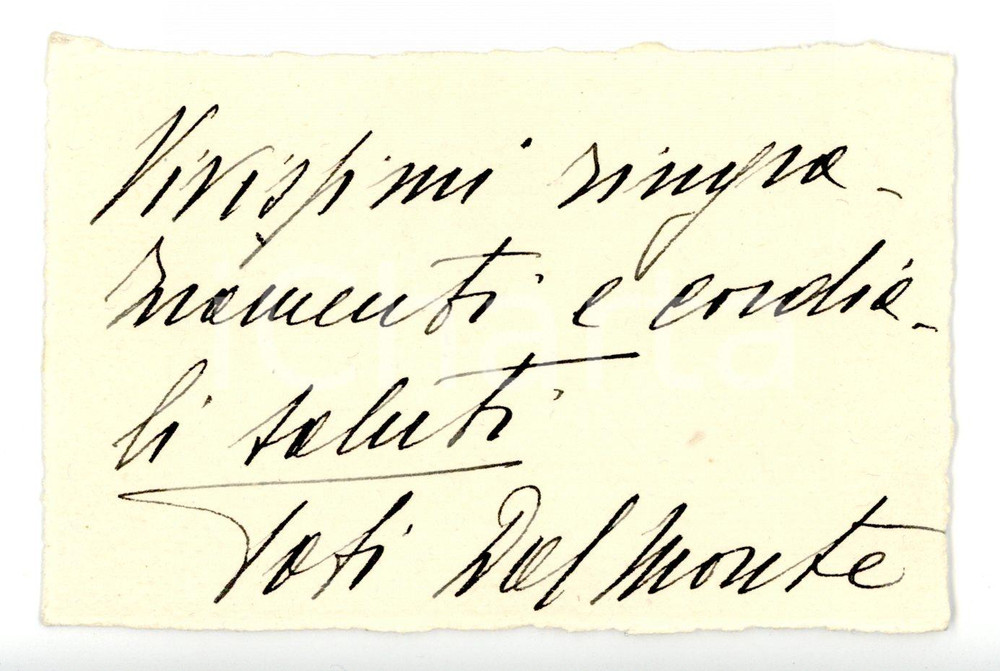 Vivissimi ringra-
ziamenti e cordia-
li saluti
Toti Dal Monte
iCharta